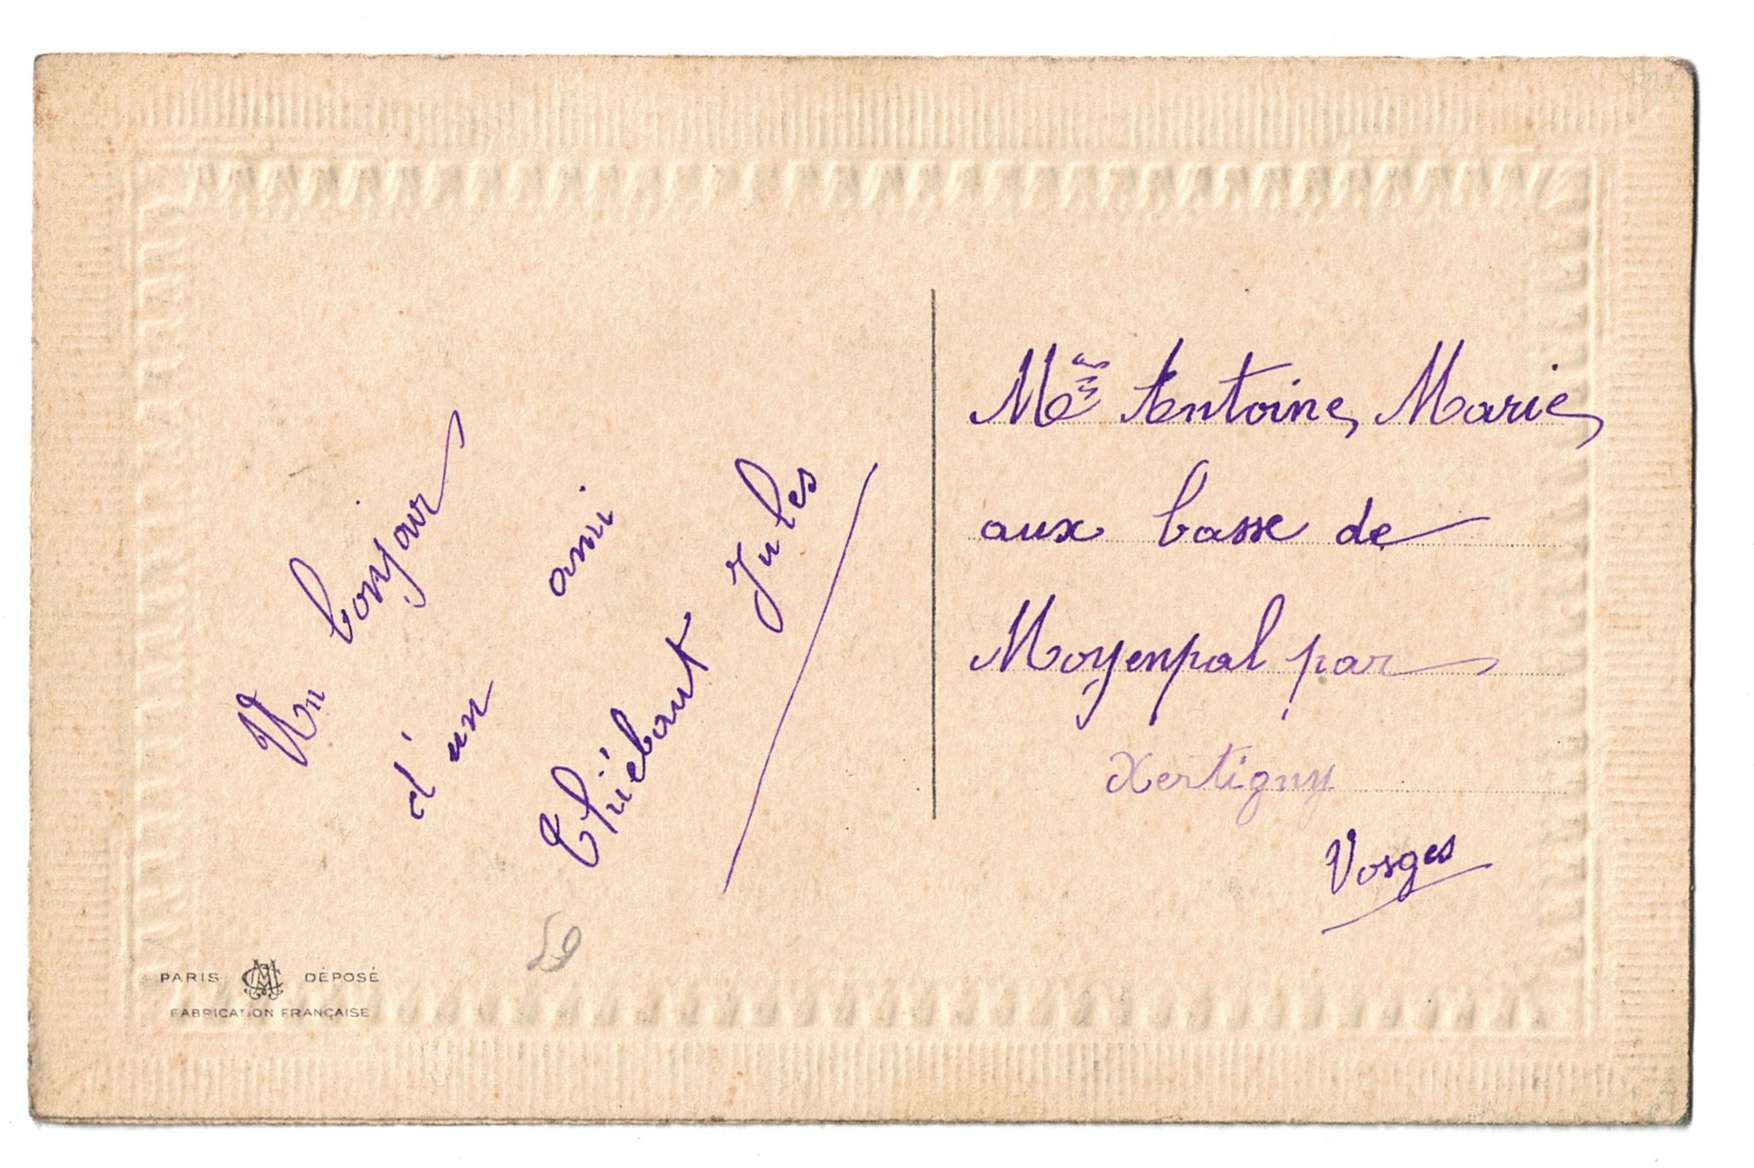 Un bonjour
d'un ami
Thiébaut Jules
Melle Antoine Marie
aux basse de
Moyenpal par
Xertigny
Vosges
59
PARIS DÉPOSÉ
FABRICATION FRANÇAISE